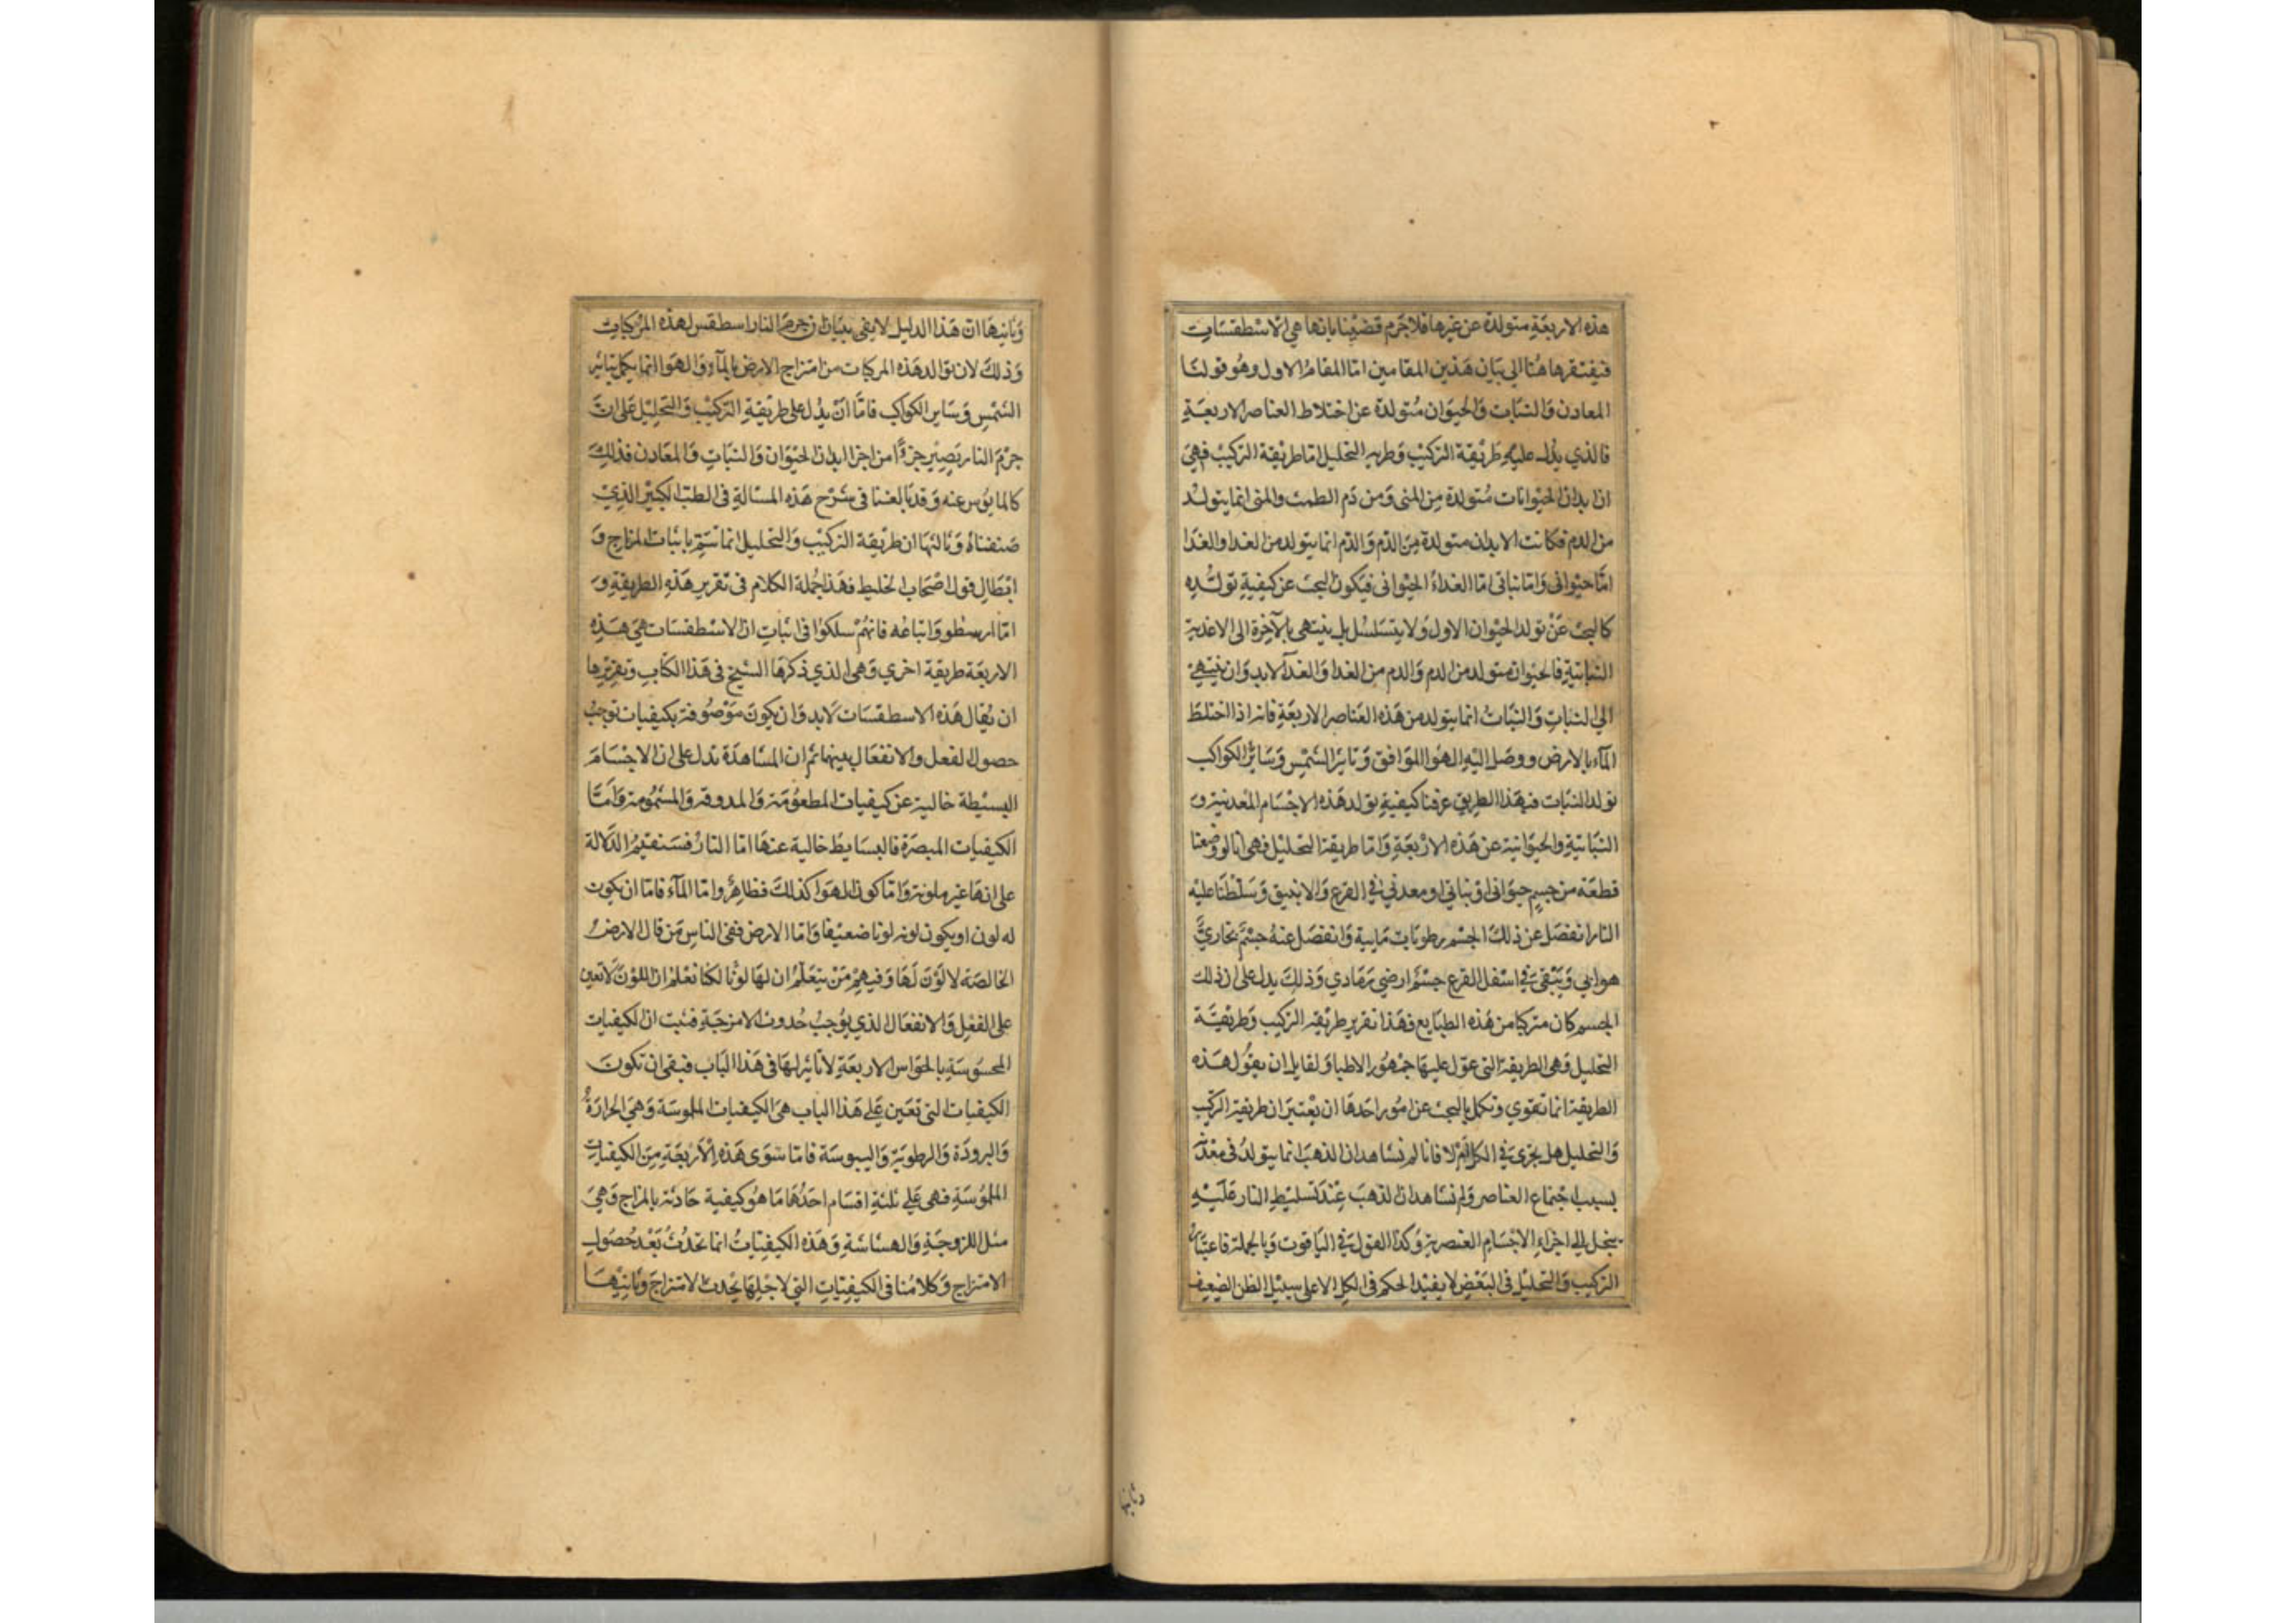 هذه الاربعة متولدة عن غيرها فلا جرم قضينا بانها هي الاسطقسات
فيفتقر هاهنا الى بيان هذين المقامين اما المقام الاول وهو قولنا
المعادن والنبات والحيوان متولدة عن اختلاط العناصر الاربعة
فالذي يدل عليه طريقة التركيب وطريق التحليل اما طريقة التركيب فهي
ان ابدان الحيوانات متولدة من المنى ومن دم الطمث والمنى انما يتولد
من الدم فكانت الابدان متولدة من الدم والدم انما يتولد من الغدا والغدا
اما حيوانى واما نباتى اما الغداء الحيوانى فيكون البحث عن كيفية تولده
كالبحث عن تولد الحيوان الاول ولا يتسلسل بل ينتهى بالآخرة الى الاغدية
النباتية فالحيوان متولد من الدم والدم من الغدا والغدآ لابد وان ينتهي
الي النبات والنبات انما يتولد من هذه العناصر الاربعة فانه اذا اختلط
المآء بالارض ووصل اليه الهوا الموافق وتاثير الشمس وساير الكواكب
تولد النبات فبهذا الطريق عرفنا كيفية تولد هذه الاجسام المعدنية و
النباتية والحيوانية عن هذه الاربعة واما طريقة التحليل فهى انا لو وضعنا
قطعة من جسم حيوانى او نباتي او معدني في القرع والانبيق وسلطنا عليه
النار انفصل عن ذلك الجسم رطوبات مايية وانفصل عنه جسم بخاري
هوايي ويبقى في اسفل القرع جسم ارضي رمادي وذلك يدل على ان ذلك
الجسم كان متركبا من هذه الطبايع فهذا تقرير طريقة التركيب وطريقة
التحليل وهى الطريقة التى عول عليها جمهور الاطبا ولقايل ان يقول هذه
الطريقة انما تقوي وتكمل بالبحث عن امور احدها ان يعتبر ان طريقة التركيب
والتحليل هل يجرى في الكل ام لا فانا لم نشاهد ان الذهب انما يتولد فى معدنه
بسبب اجتماع العناصر ولم نشاهد ان الذهب عند تسليط النار عليه
ينحل الى اجزاء الاجسام العنصرية وكذا القول في الياقوت وبالجملة فاعتبار
التركيب والتحليل فى البعض لا يفيد الحكم فى الكل الا على سبيل الظن الضعيف
وثانيها
وثانيها ان هذا الدليل لا يفى ببيان ان جرم النار اسطقس لهذه المركبات
وذلك لان توالد هذه المركبات من امتزاج الارض بالمآء والهوا انما يكمل بتاثير
الشمس وساير الكواكب فاما ان يدل على طريقة التركيب والتحليل على ان
جرم النار يصير جزءا من اجزا ابدان الحيوان والنبات والمعادن فذلك
كالمايوس عنه وقد بالغنا فى شرح هذه المسالة فى الطب الكبير الذي
صنفناه وثالثها ان طريقة التركيب والتحليل انما تتم باثبات المزاج و
ابطال قول اصحاب الخليط فهذا جملة الكلام فى تقرير هذه الطريقة و
اما ارسطو واتباعه فانهم سلكوا فى اثبات ان الاسطقسات هي هذه
الاربعة طريقة اخري وهى الذي ذكرها الشيخ فى هذا الكتاب وتقريرها
ان يقال هذه الاسطقسات لابد وان يكون موصوفة بكيفيات توجب
حصول الفعل والانفعال بينها ثم ان المشاهدة تدل على ان الاجسام
البسيطة خالية عن كيفيات المطعومة والمذوقة والمشمومة واما
الكيفيات المبصرة فالبسايط خالية عنها اما النار فسنقيم الدلالة
على انها غير ملونة واما كون الهوا كذلك فظاهر واما المآء فاما ان يكون
له لون او يكون لونه لونا ضعيفا واما الارض ففى الناس من قال الارض
الخالصة لا لون لها وفيهم من يتعلم ان لها لونا لكنا نعلم ان اللون لا تعين
على الفعل والانفعال الذي يوجب حدوث الامزجة فثبت ان الكيفيات
المحسوسة بالحواس الاربعة لا تاثير لها فى هذا الباب فبقى ان تكون
الكيفيات التى تعين علي هذا الباب هى الكيفيات الملموسة وهي الحرارة
والبرودة والرطوبة واليبوسة فاما سوى هذه الاربعة من الكيفيات
الملموسة فهى علي ثلثة اقسام احدها ما هو كيفية حادثة بالمزاج وهي
مثل اللزوجة والهشاشة وهذه الكيفيات انما تحدث بعد حصول
الامتزاج وكلامنا فى الكيفيات التي لاجلها يحدث الامتزاج وثانيها